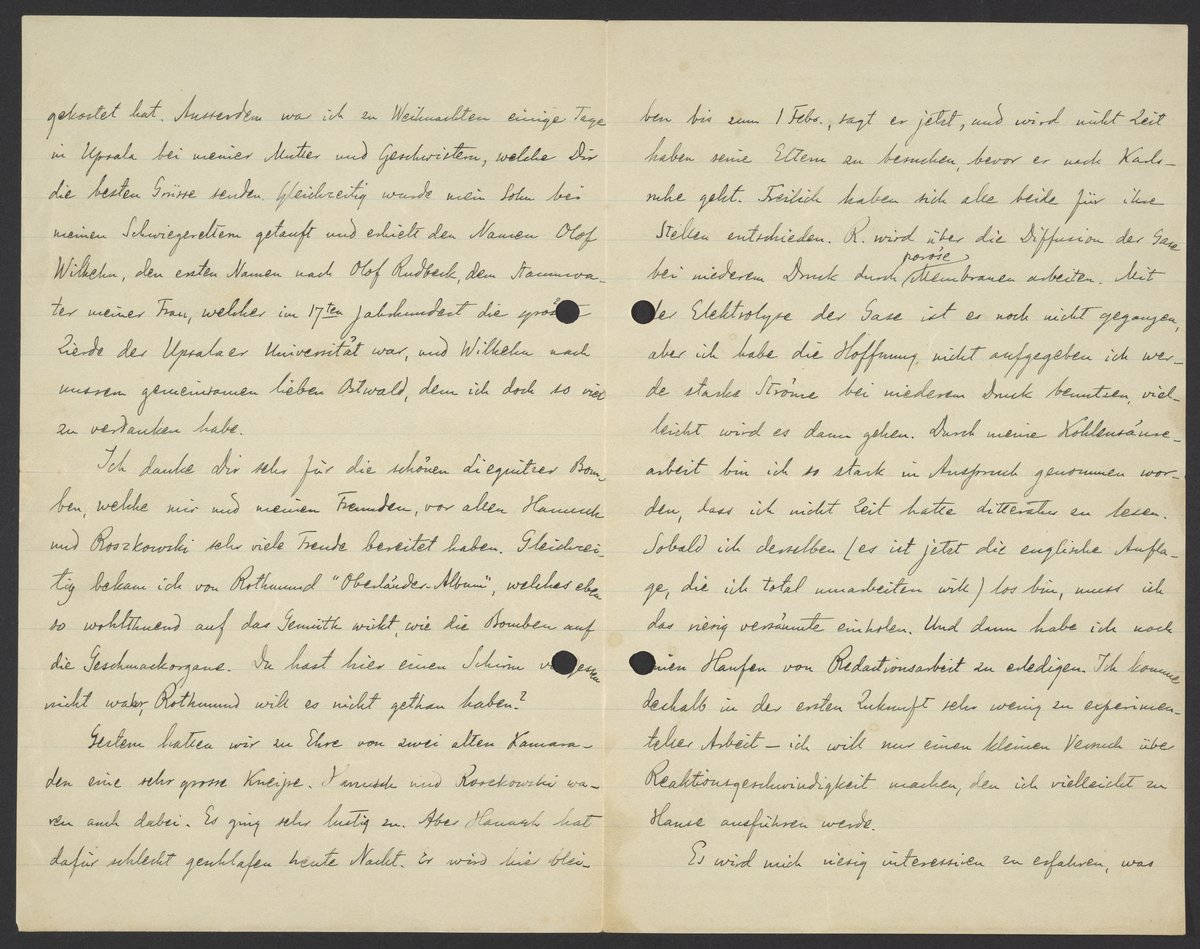 gekostet hat. Ausserdem war ich zu Weihnachten einige Tage
in Upsala bei meiner Mutter und Geschwistern, welche Dir
die besten Grüsse senden. Gleichzeitig wurde mein Sohn bei
meinen Schwiegereltern getauft und erhielt den Namen Olof
Wilhelm, den ersten Namen nach Olof Rudbeck, dem Stammva-
ter meiner Frau, welcher im 17ten Jahrhundert die
Zierde der Upsalaer Universität war, und Wilhelm nach
unserem gemeinsamen lieben Ostwald, dem ich doch so viel
zu verdanken habe.
Ich danke Dir sehr für die schönen Liegnitzer Bom-
ben, welche mir und meinen Freunden, vor allen Hanusch
und Roszkowski sehr viele Freude bereitet haben. Gleichzei-
tig bekam ich von Rothmund "Oberländer-Album", welches eben
so wohlthuend auf das Gemüth wikt, wie die Bomben auf
die Geschmackorgane. Du hast hier einen Schirm vergessen
nicht wahr, Rothmund will es nicht gethan haben?
Gestern hatten wir zu Ehre von zwei alten Kamara-
den eine sehr grosse Kneipe. Hanusch und Roszkowski wa-
ren auch dabei. Es ging sehr lustig zu. Aber Hanusch hat
dafür schlecht geschlafen heute Nacht. Er wird hier blei-
ben bis zum 1 Febr., sagt er jetzt, und wird nicht Zeit
haben seine Eltern zu besuchen, bevor er nach Karls-
ruhe geht. Freilich haben sich alle beide für ihre
Stellen entschieden. R. wird über die Diffusion der Gase
bei niederem Druck durch poröse Membranen arbeiten. Mit
der Elektrolyse der Gase ist es noch nicht gegangen,
aber ich habe die Hoffnung nicht aufgegeben ich wer-
de starke Ströme bei niederem Druck benutzen, viel-
leicht wird es dann gehen. Durch meine Kohlensäure-
arbeit bin ich so stark in Anspruch genommen wor-
den, dass ich nicht Zeit hatte Litteratur zu lesen.
Sobald ich derselben (es ist jetzt die englische Aufla-
ge, die ich total umarbeiten will) los bin, muss ich
das riesig versäumte einholen. Und dann habe ich noch
einen Haufen von Redactionsarbeit zu erledigen. Ich komme
deshalb in der ersten Zukunft sehr wenig zu experimen-
teller Arbeit – ich will nur einen kleinen Versuch über
Reaktionsgeschwindigkeit machen, den ich vielleicht zu
Hause ausführen werde.
Es wird mich riesig interessieren zu erfahren, was